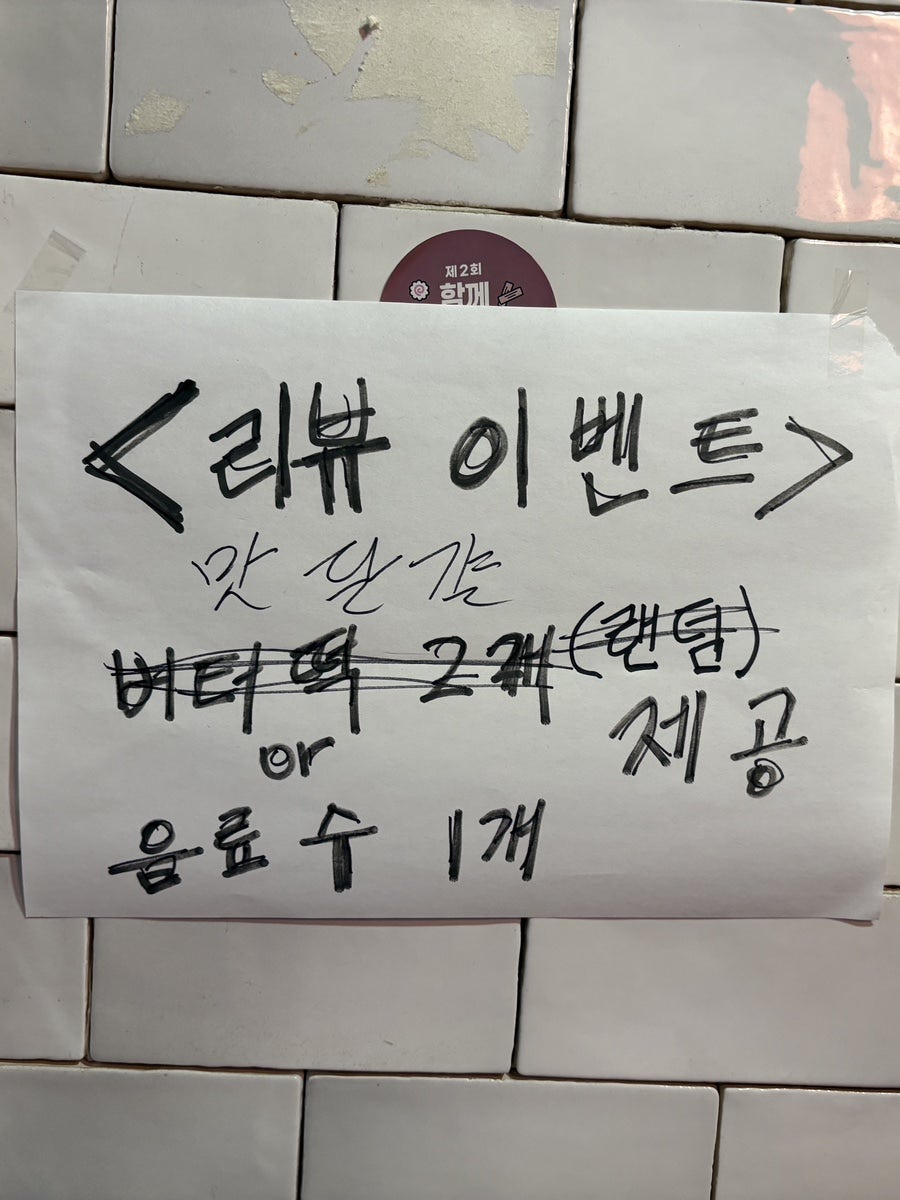 제2회
함께
<리뷰 이벤트>
맛 달걀
버터떡 2개 (랜덤)
or
제공
음료수 1개